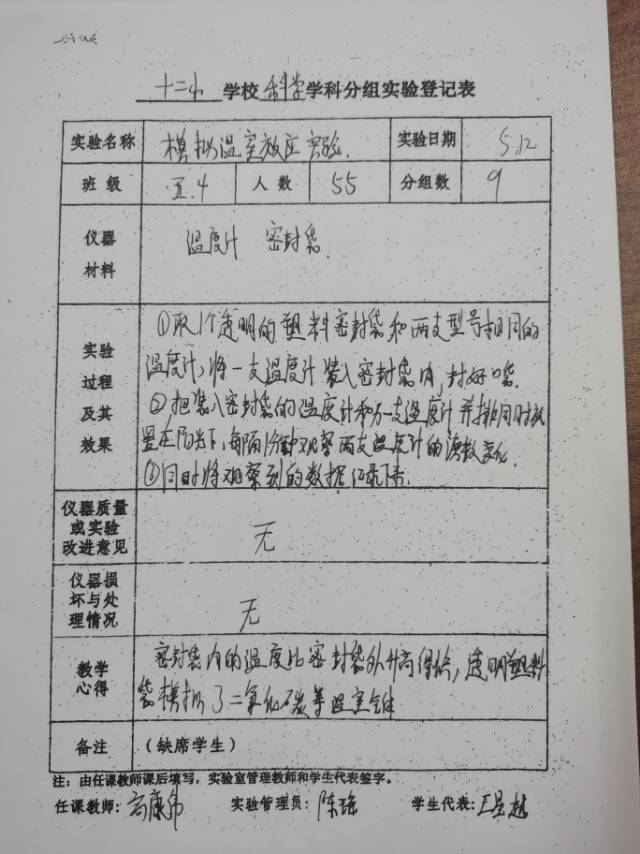 十二小 学校 科学 学科分组实验登记表
实验名称 模拟温室效应实验. 实验日期 5.12
班级 五.4 人数 55 分组数 9
仪器材料 温度计 密封袋
实验过程及其效果
①取1个透明的塑料密封袋和两支型号相同的
温度计,将一支温度计装入密封袋内,封好口袋.
②把装入密封袋的温度计和另一支温度计并排同时放
置在阳光下,每隔1分钟观察两支温度计的读数变化.
③同时将观察到的数据记录下来.
仪器质量或实验改进意见 无
仪器损坏与处理情况 无
教学心得
密封袋内的温度比密封袋外升高得快,透明塑料
袋模拟了二氧化碳等温室气体
备注 (缺席学生)
注:由任课教师课后填写,实验室管理教师和学生代表签字。
任课教师: 高康伟 实验管理员: 陈瑶 学生代表: